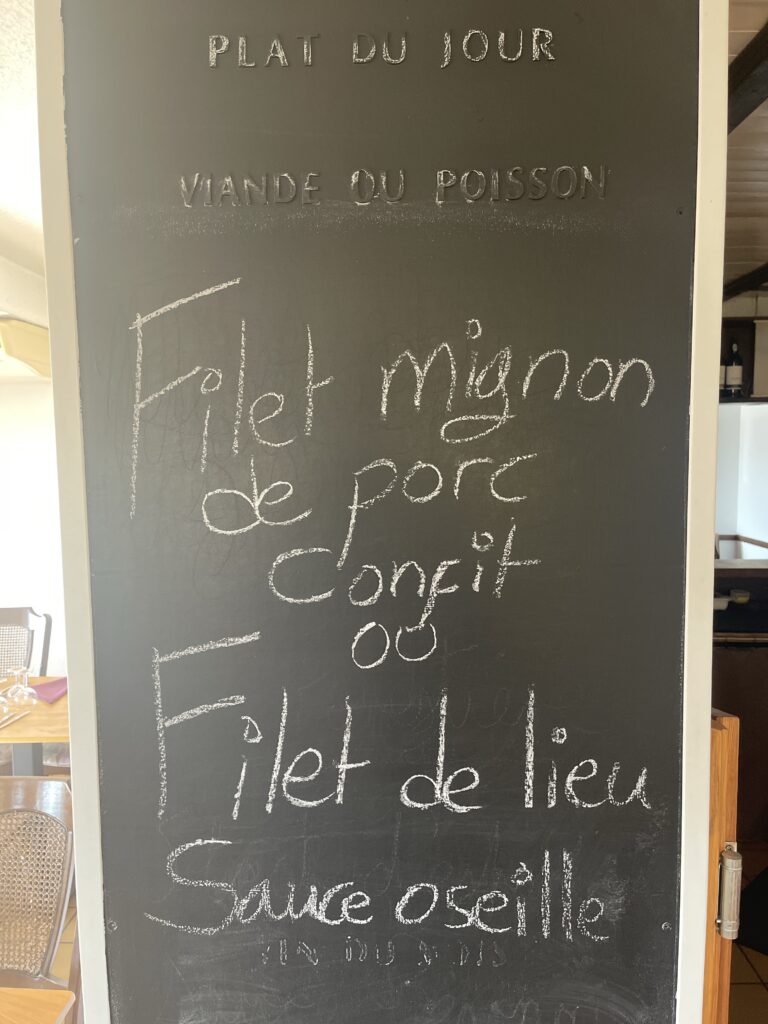 PLAT DU JOUR
VIANDE OU POISSON
Filet mignon
de porc
confit
ou
Filet de lieu
Sauce oseille
VIN DU MOIS